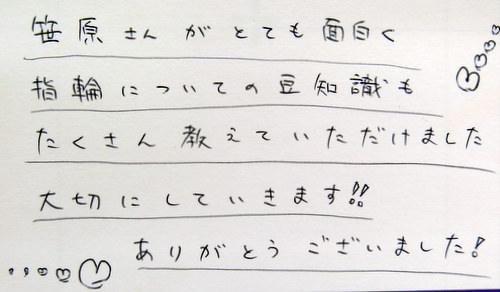 笹原さんがとても面白く
指輪についての豆知識も
たくさん教えていただけました
大切にしていきます!!
ありがとうございました!